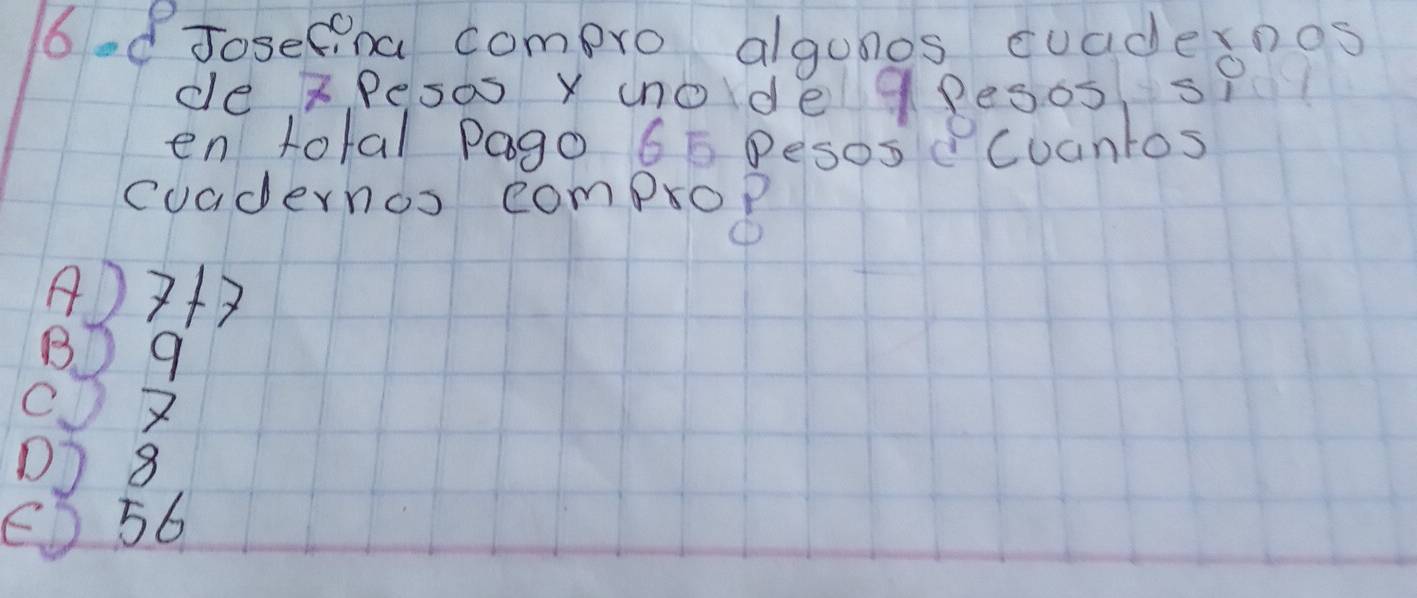 16.¿Josefina compro algunos cuadernos
de 7 Pesos y uno de 9 Pesos, si
en total Pago 65 Pesos ¿Cuantos
cuadernos compro?
A) 7+7
B) 9
C) 7
D) 8
E) 56